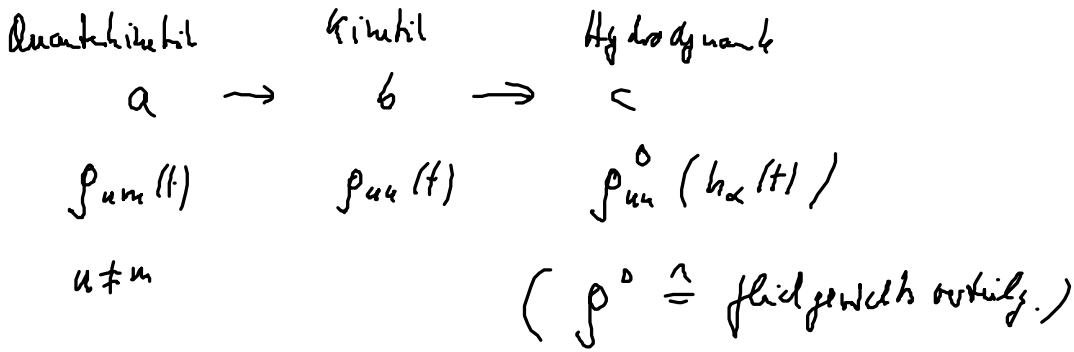 Quantenkinetik Kinetik Hydrodynamik
a → b ⟹ c
ρₙₘ(t) ρₙₙ(t) ρ⁰ₙₙ (h_α(t))
n ≠ m ( ρ⁰ ≙ Gleichgewichtsverteilg. )